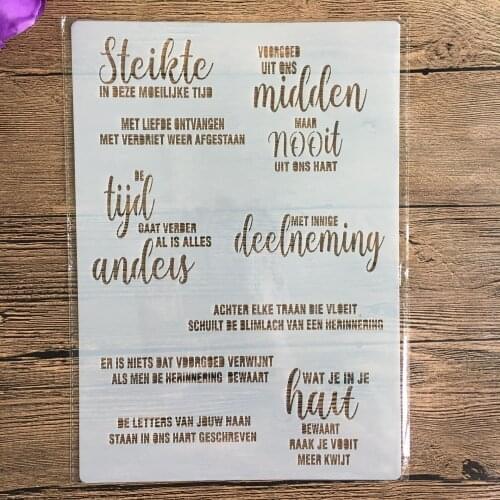 Steikte
IN DEZE MOEILIJKE TIJD
VOORGOED
UIT ONS
midden
MAAR
nooit
UIT ONS HART
MET LIEFDE ONTVANGEN
MET VERDRIET WEER AFGESTAAN
DE
tijd
GAAT VERDER
AL IS ALLES
andeis
MET INNIGE
deelneming
ACHTER ELKE TRAAN DIE VLOEIT
SCHUILT DE BLIMLACH VAN EEN HERINNERING
ER IS NIETS DAT VOORGOED VERWIJNT
ALS MEH DE HERINNERING BEWAART
WAT JE IN JE
hait
BEWAART
RAAK JE VOOIT
MEER KWIJT
DE LETTERS VAN JOUW NAAN
STAAN IN ONS HART GESCHREVEN